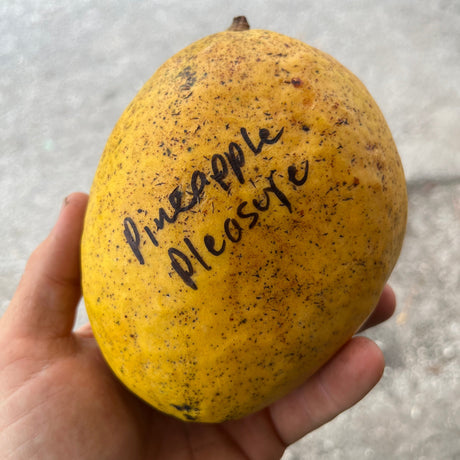 Pineapple
Pleasure